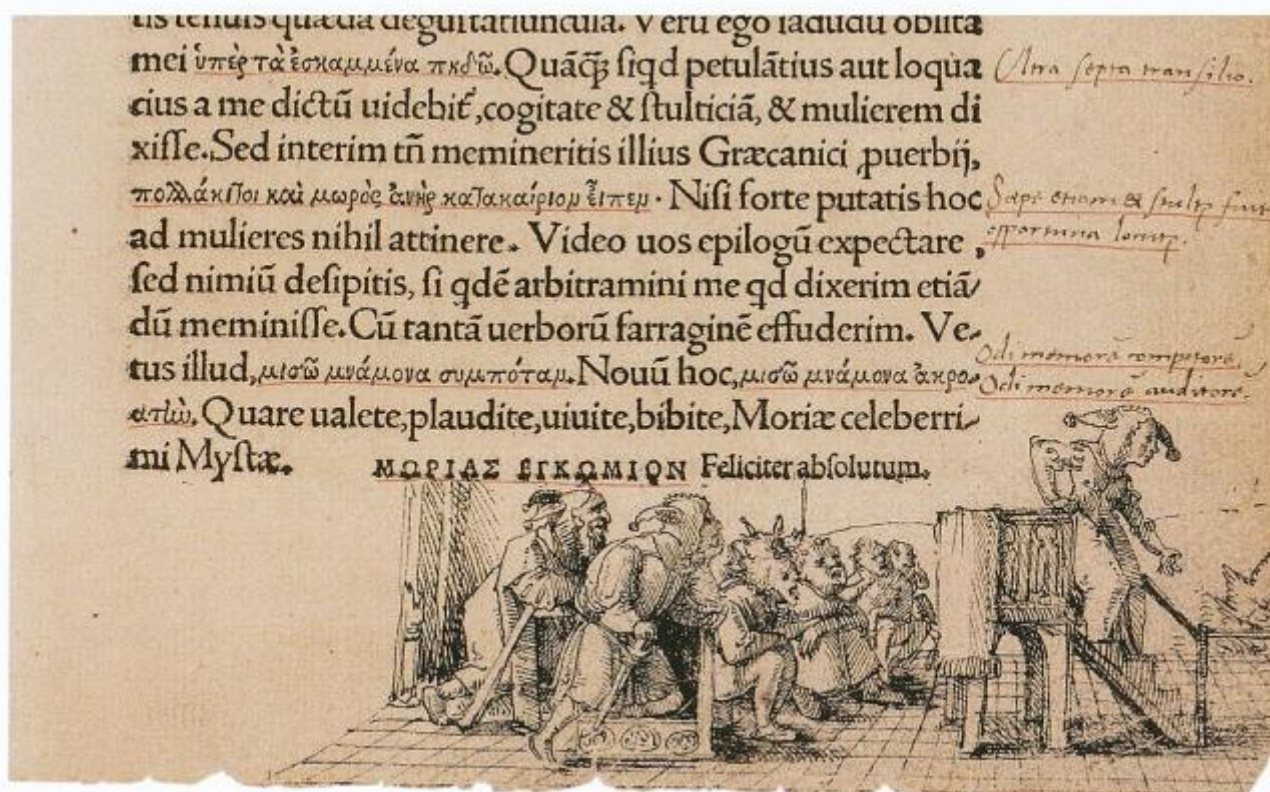 tis tenuis quædā degustatiuncula. Verū ego iādudū oblita
mei ὑπὲρ τὰ ἐσκαμμένα πηδῶ. Quāꝗ̃ ſiqd petulātius aut loqua
cius a me dictū uidebit̃, cogitate & ſtulticiā, & mulierem di
xiſſe. Sed interim tñ memineritis illius Græcanici ꝓuerbij,
πολλάκι τοι καὶ μωρὸς ἀνὴρ κατακαίριον εἶπεν. Niſi forte putatis hoc
ad mulieres nihil attinere. Video uos epilogū expectare,
ſed nimiū deſipitis, ſi qdē arbitramini me qd dixerim etiā/
dū meminiſſe. Cū tantā uerborū farraginē effuderim. Ve/
tus illud, μισῶ μνάμονα συμπόταν. Nouū hoc, μισῶ μνάμονα ἀκρο/
ατίω. Quare ualete, plaudite, uiuite, bibite, Moriæ celeberri/
mi Myſtæ.
ΜΩΡΙΑΣ ΕΓΚΩΜΙΟΝ Feliciter abſolutum.
Ultra septa transilio.
Sæpe etiam
opportuna
Odi memorē compotorē.
Odi memorē auditorē.